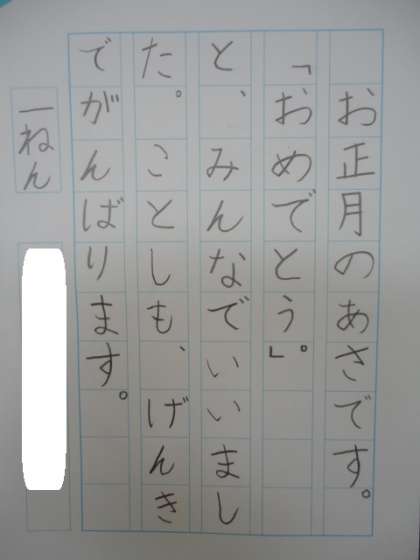 お正月のあさです。
「おめでとう」。
と、みんなでいいまし
た。ことしも、げんき
でがんばります。
一ねん